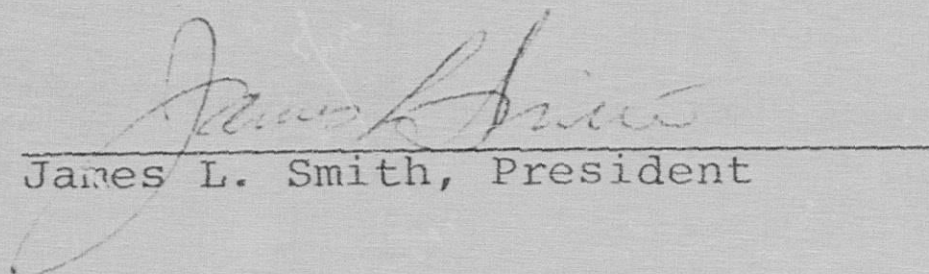 James L Smith
James L. Smith, President